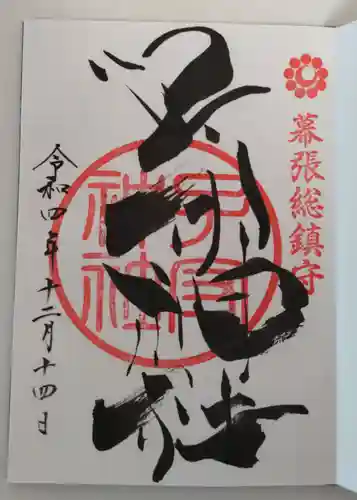 幕張総鎮守
子守神社
令和四年十二月十四日